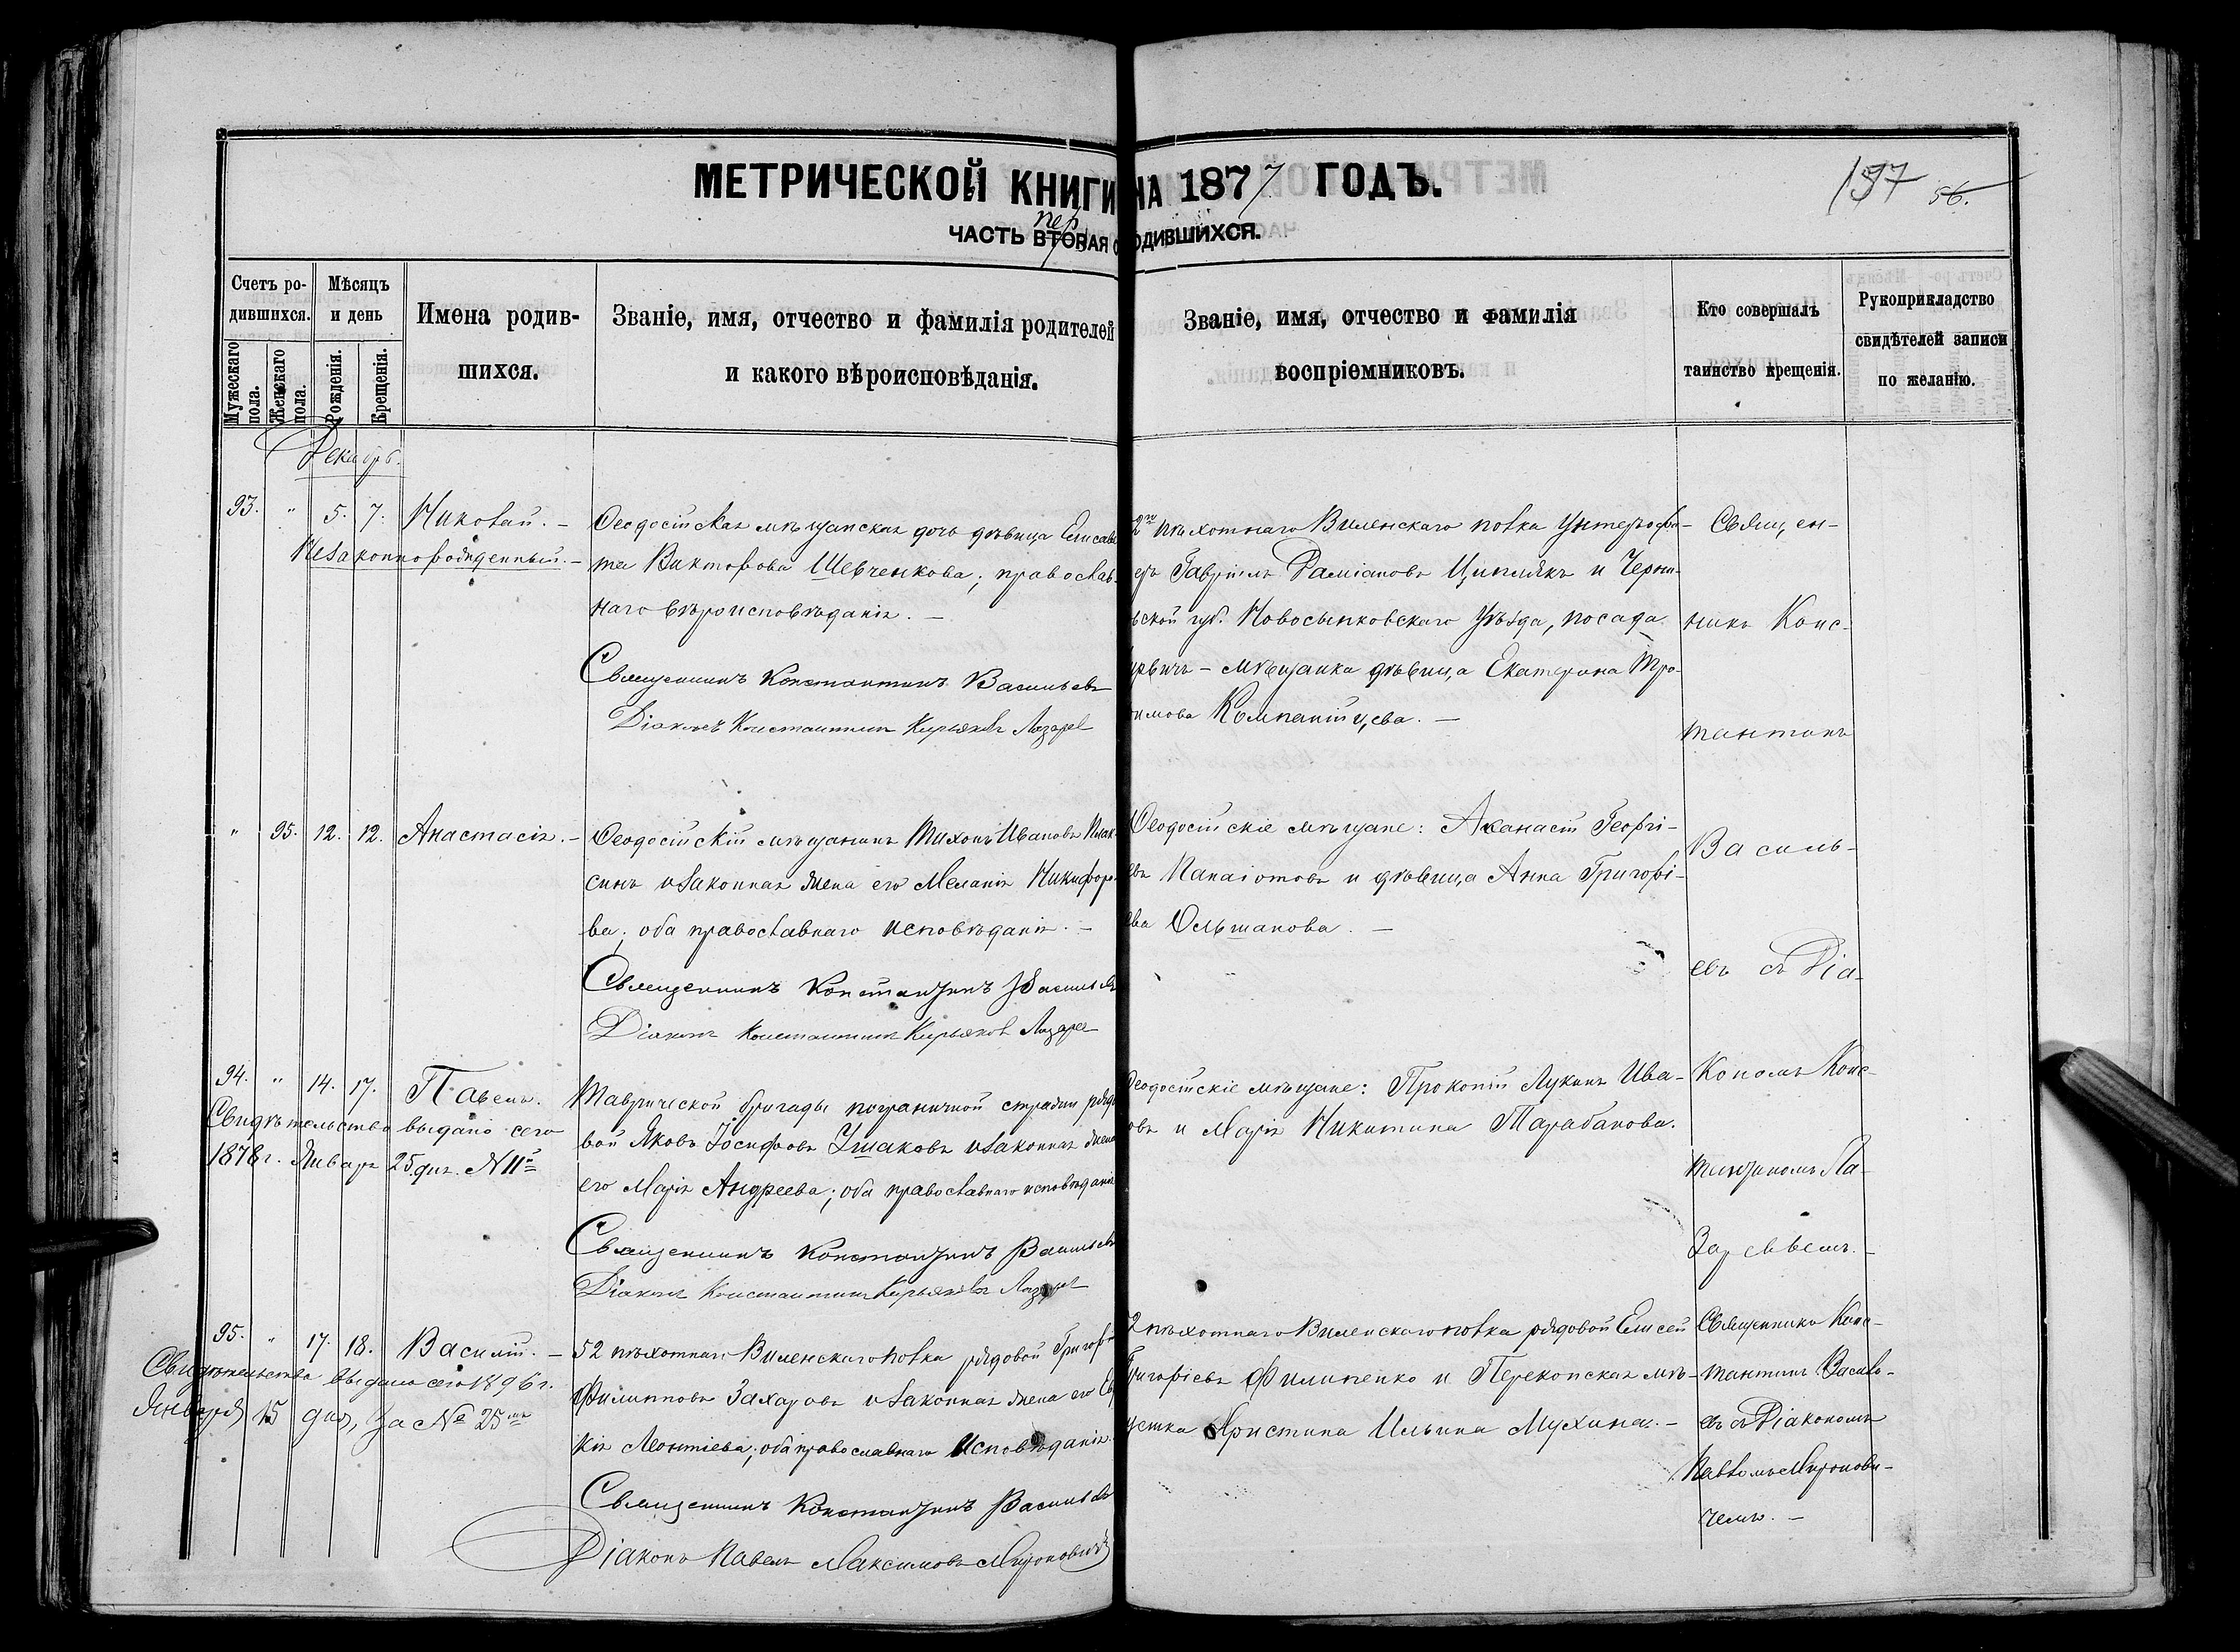 МЕТРИЧЕСКОЙ КНИГИ НА 1877 ГОДЪ.
197 56.
пер
ЧАСТЬ ВТОРАЯ О РОДИВШИХСЯ.
Счетъ ро-
дившихся.
Мужескаго пола.
Женскаго пола.
Мѣсяцъ
и день
Рожденія.
Крещенія.
Имена родив-
шихся.
Званіе, имя, отчество и фамилія родителей
и какого вѣроисповѣданія.
Званіе, имя, отчество и фамилія
воспріемниковъ.
Кто совершалъ
таинство крещенія.
Рукоприкладство
свидѣтелей записи
по желанію.
Декабрь.
93. " 5. 7. Николай. –
Незаконнорожденный. –
Ѳеодосійская мѣщанская дочь дѣвица Елисаве
та Викторова Шевченкова; православ-
наго вѣроисповѣданія. –
Священникъ Константинъ Васильевъ
Діаконъ Константинъ Кирьяковъ Лазарев
2го пѣхотнаго Виленскаго полка Унтеръ-офи-
еръ Гавріилъ Даміановъ Циплякъ и Черни-
ьской губ. Новосыпковскаго Уѣзда, посада
– мѣщанка дѣвица Екатерина Тро-
имова Компанійцева. –
" 95. 12. 12. Анастасія. –
Ѳеодосійскій мѣщанинъ Тихонъ Ивановъ Плак-
синъ и законная жена его Меланія Никифоро-
ва; оба православнаго исповѣданія. –
Священникъ Константинъ Васильевъ
Діаконъ Константинъ Кирьяков Лазарев
Ѳеодосійскіе мѣщане: Аѳанасій Георгі-
евъ Панаіотовъ и дѣвица Анна Григорі-
ева Ольшанова. –
94. " 14. 17. Павелъ.
Свидѣтельство выдано сего
1878 г. Января 25 дня. N 11й
Таврической бригады пограничной стражи рядо
вой Яковъ Іосифовъ Ушаковъ и законная жена
его Марія Андреева; оба православнаго исповѣданія
Священникъ Константинъ Васильевъ
Діаконъ Константинъ Кирьяковъ Лазарев
Ѳеодосійскіе мѣщане: Прокопій Лукинъ Ива-
овъ и Марія Никитина Тарабанова.
95. " 17. 18. Василій. –
Свидѣтельство выдано сего 1896 г.
Января 15 дня, за № 25мъ
52 пѣхотнаго Виленскаго полка рядовой Григорій
Филипповъ Захаровъ и законная жена его Ев
кія Леонтіева; оба православнаго исповѣданія.
Священникъ Константинъ Васильевъ
Діаконъ Павелъ Максимовъ Мироновичъ
2 пѣхотнаго Виленскаго полка рядовой Елисей
Григорьевъ Филипенко и Перекопская мѣ-
Христина Ильина Мухина. –
Священ-
никъ Конс-
тантинъ
Василь-
евъ съ Діа-
кономъ Конс-
тантиномъ Ла-
заревымъ. –
Священникъ Конс-
тантинъ Василь-
евъ съ Діакономъ
Павломъ Миронови-
чемъ. –